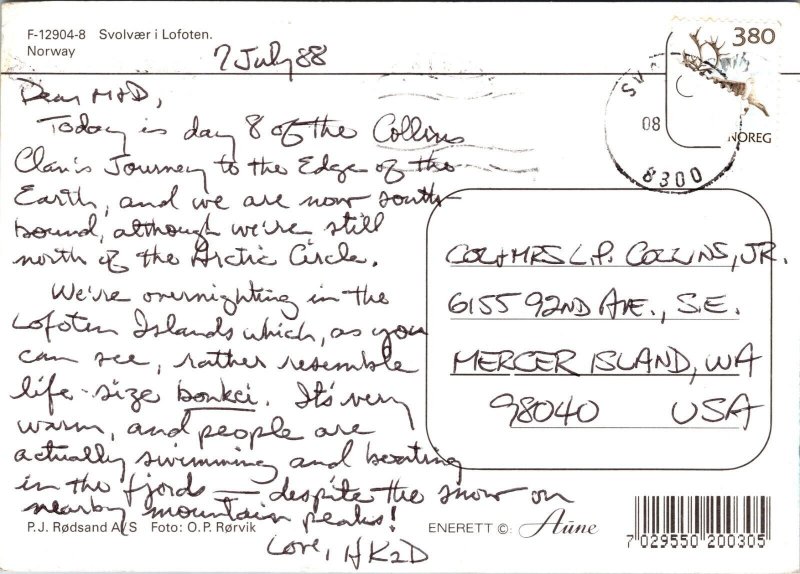 F-12904-8 Svolvær i Lofoten.
Norway
7 July 88
380
NOREG
SV
08
8300
Dear M+D,
Today is day 8 of the Collins
Clan's Journey to the Edge of the
Earth, and we are now south-
bound, although we're still
north of the Arctic Circle.
We're overnighting in the
Lofoten Islands which, as you
can see, rather resemble
life-size bonkei. It's very
warm, and people are
actually swimming and boating
in the fjords — despite the snow on
nearby mountain peaks!
Love, HK2D
COL+MRS L.P. COLLINS, JR.
6155 92ND AVE., S.E.
MERCER ISLAND, WA
98040 USA
P.J. Rødsand A/S Foto: O.P. Rørvik
ENERETT ©: Aune
7 029550 200305